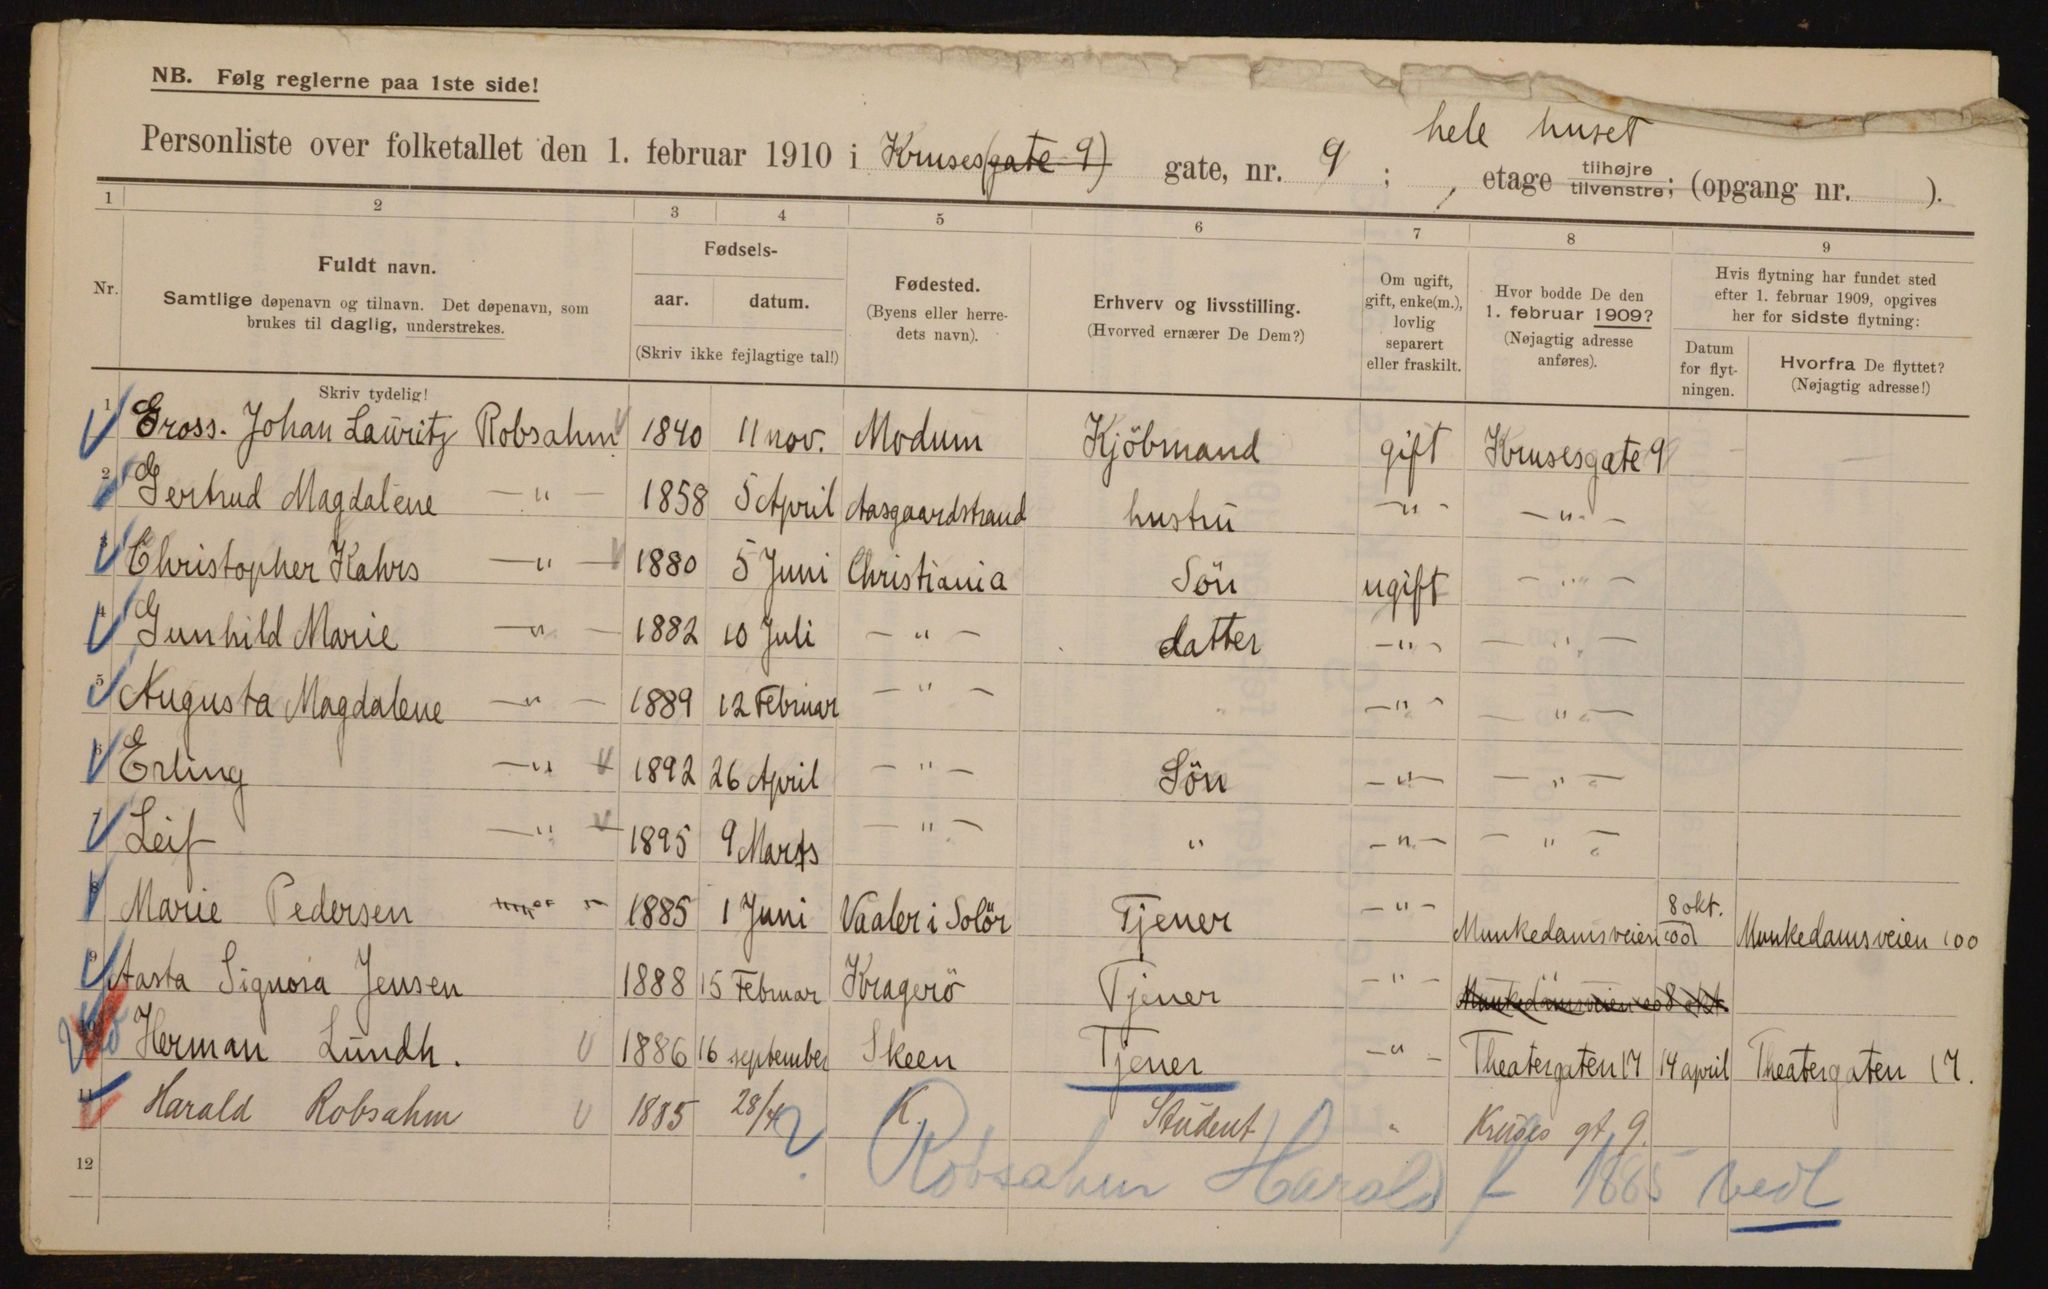 NB. Følg reglerne paa 1ste side!
hele huset
Personliste over folketallet den 1. februar 1910 i Kruses (gate 9) gate, nr. 9 ; , etage tilhøjre tilvenstre; (opgang nr. ).
1 2 3 4 5 6 7 8 9
Nr.
Fuldt navn.
Samtlige døpenavn og tilnavn. Det døpenavn, som
brukes til daglig, understrekes.
Skriv tydelig!
Fødsels-
aar. datum.
(Skriv ikke fejlagtige tal!)
Fødested.
(Byens eller herre-
dets navn).
Erhverv og livsstilling.
(Hvorved ernærer De Dem?)
Om ugift,
gift, enke(m.),
lovlig
separert
eller fraskilt.
Hvor bodde De den
1. februar 1909?
(Nøjagtig adresse
anføres).
Hvis flytning har fundet sted
efter 1. februar 1909, opgives
her for sidste flytning:
Datum
for flyt-
ningen.
Hvorfra De flyttet?
(Nøjagtig adresse!)
1 Gross. Johan Lauritz Robsahm 1840 11 nov. Modum Kjöbmand gift Krusesgate 9 — —
2 Gertrud Magdalene — " — 1858 5 April Aasgaardstrand hustru — " — — " —
3 Christopher Kahrs — " — 1880 5 Juni Christiania Sön ugift — " —
4 Gunhild Marie — " — 1882 10 Juli — " — datter — " — — " —
5 Augusta Magdalene — " — 1889 12 Februar — " — — " — — " —
6 Erling — " — 1892 26 April — " — Sön — " — — " —
7 Leif — " — 1895 9 Marts — " — " — " — — " —
8 Marie Pedersen 1885 1 Juni Vaaler i Solör Tjener — " — Munkedamsveien 100 8 okt. Munkedamsveien 100
9 Aasta Signora Jensen 1888 15 Februar Kragerö Tjener — " — Munkedamsveien 8 okt
10 Herman Lundh. 1886 16 september Skeen Tjener — " — Theatergaten 17 14 april Theatergaten 17.
11 Harald Robsahm 1885 28/4 K. Student " Kruses gt 9.
12
? Robsahm Harald f 1885 vedl